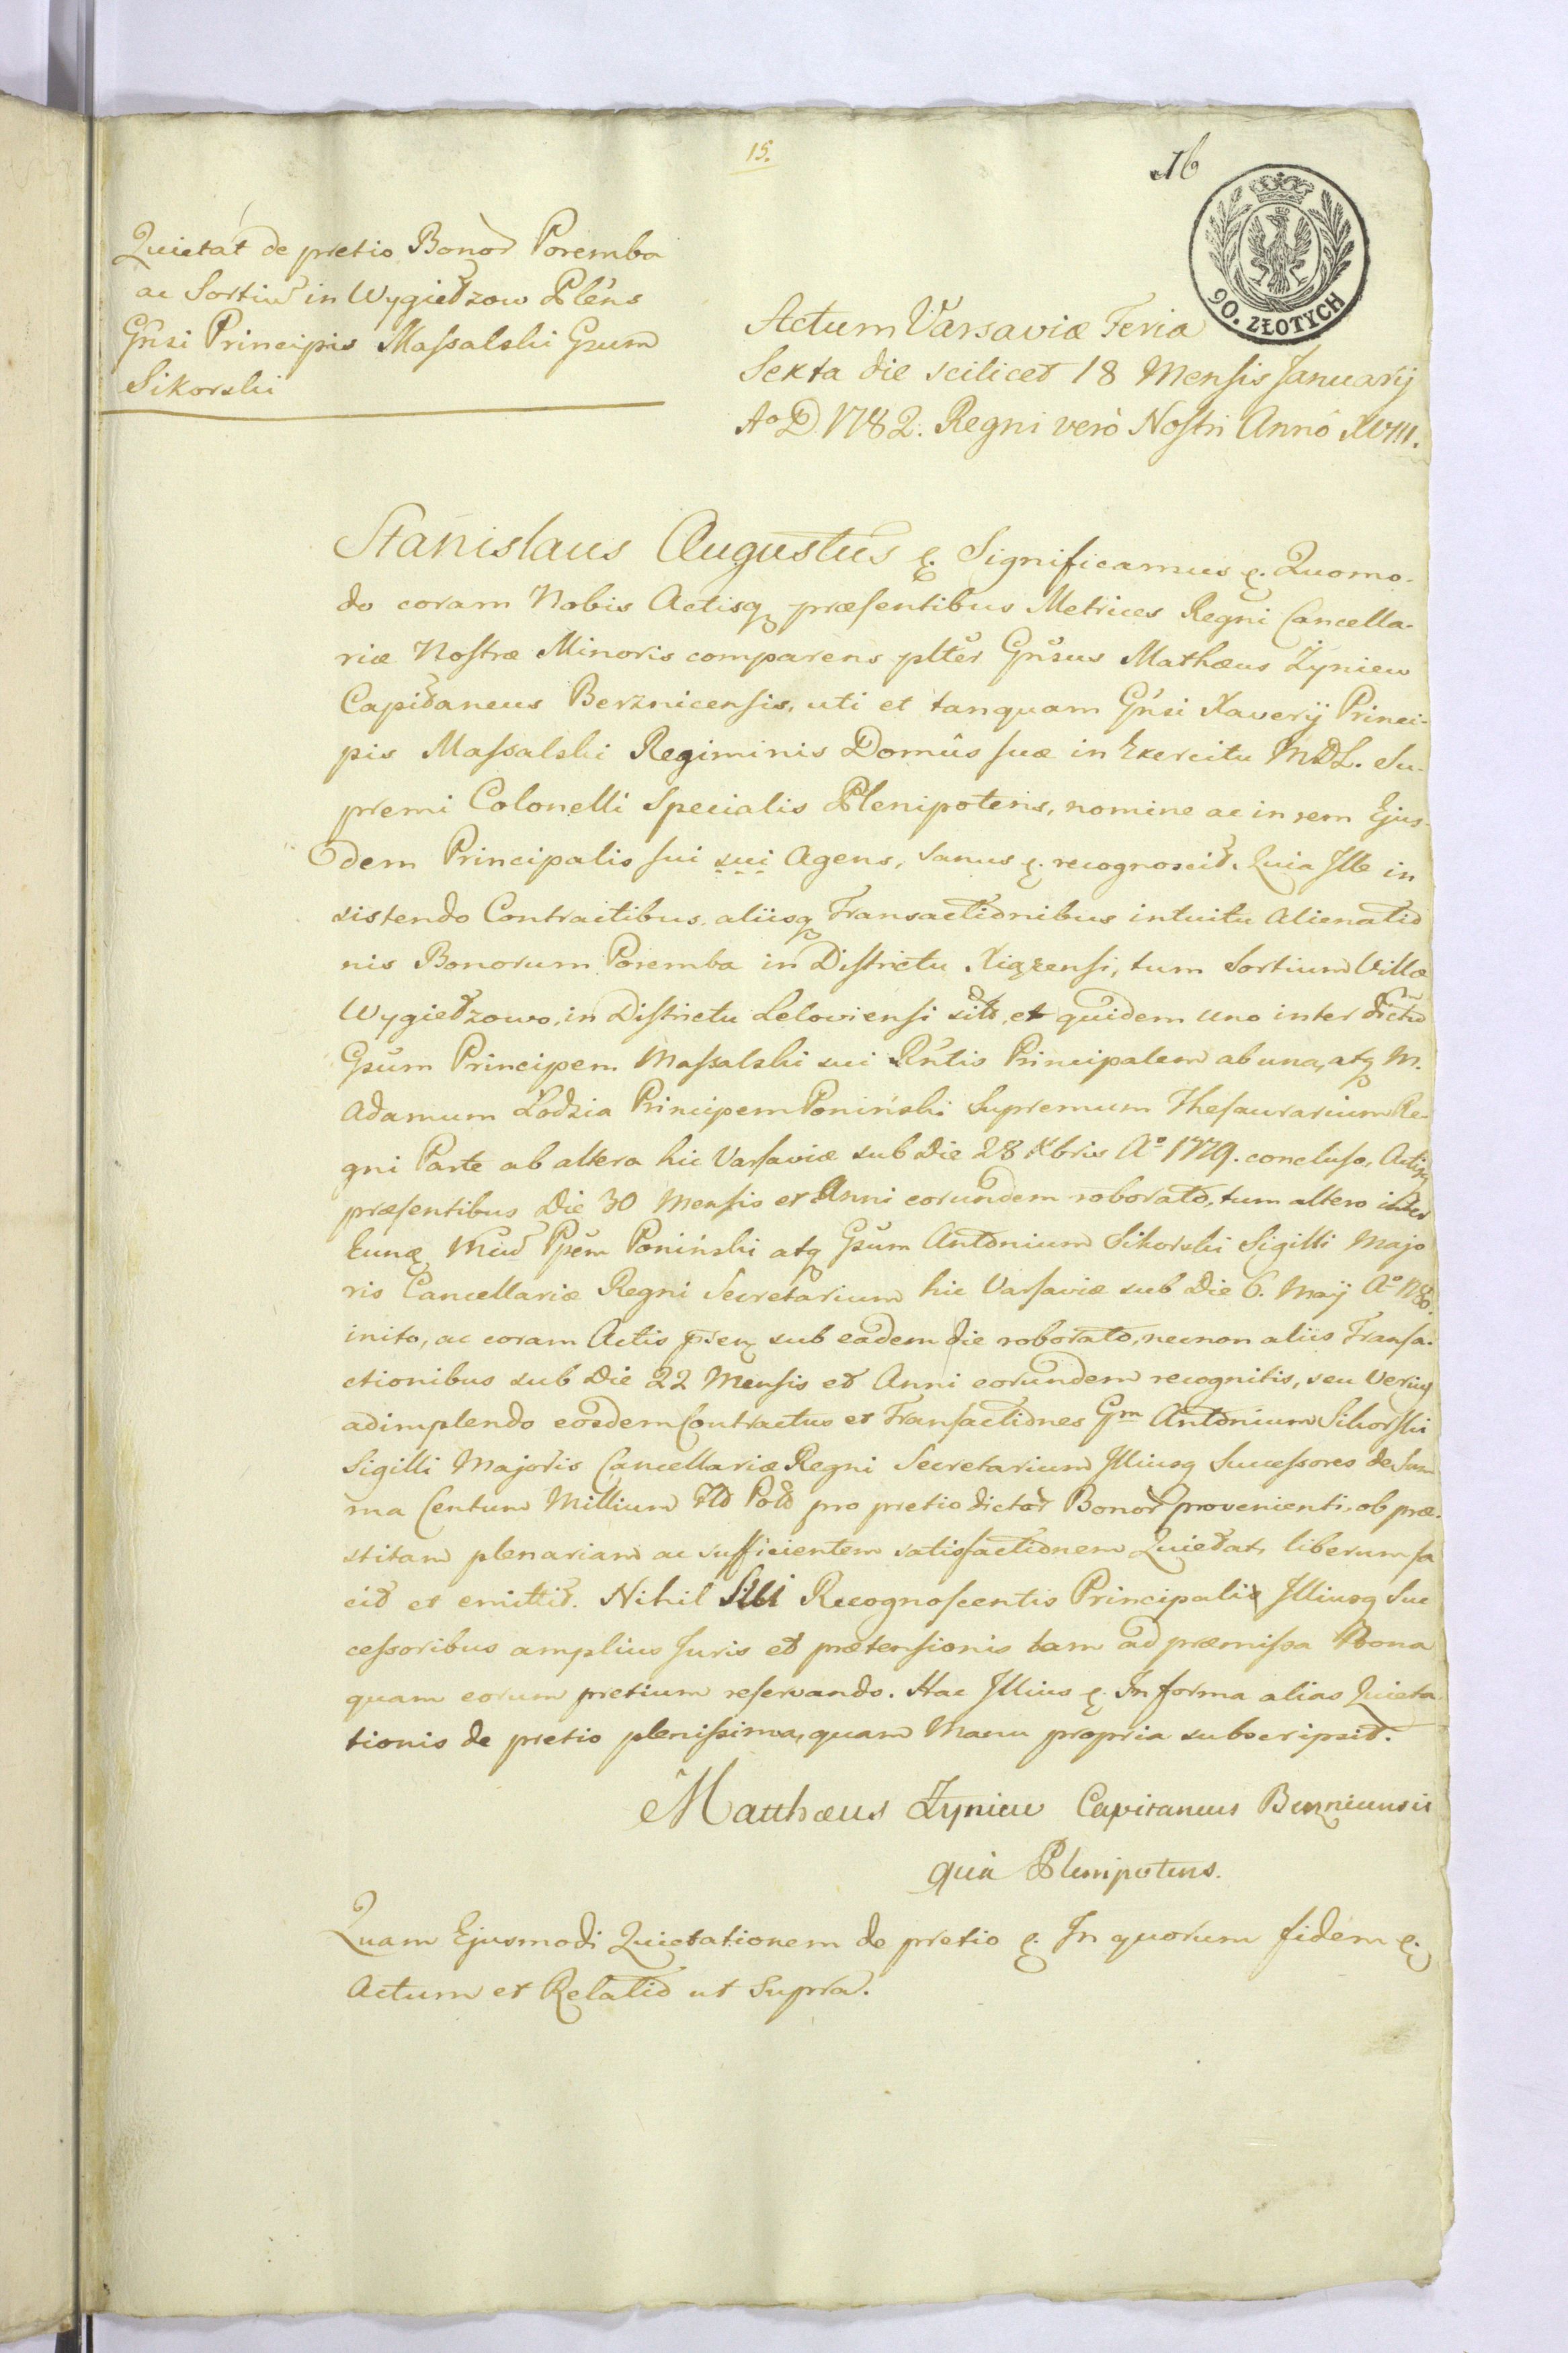 15.
16
90. ZŁOTYCH
Quietat de pretio Bonor Poremba
ac Sortiu in Wygiedzow Plens
Gnsi Principis Maſsalski Gsum
Sikorski
Actum Varsaviæ Feria
Sexta die scilicet 18 Menſis Januarij
Ao D 1782. Regni verò Noſtri Annô XVIII.
Stanislaus Augustus &. Significamus &. Quomo-
do coram Nobis Actisq præſentibus Metrices Regni Cancella-
riæ Noſtræ Minoris comparens plter Gnsus Mathæus Żyniew
Capitaneus Berznicenſis, uti et tanquam Gnsi Xaverij Princi-
pis Maſsalski Regiminis Domûs ſuæ in Exercitu MDL. Su-
premi Colonelli Specialis Plenipotens, nomine ac in rem Ejus-
dem Principalis ſui sui Agens, sanus &. recognoscit. Quia Ille in
sistendo Contractibus, aliisq Transactionibus intuitu alienatio
nis Bonorum Poremba in Diſtrictu Xiązensi, tum Sortium Villæ
Wygiedzowo, in Diſtrictu Leloviensi sito, et quidem uno inter dictu
Gsum Principem Maſsalski sui Rntis Principalem ab una, atq M.
Adamum Łodzia Principem Poniński Supremum Theſaurarium Re-
gni Parte ab altera hic Varſaviæ sub die 28 Xbris Ao 1779. concluſo, Actisq
præſentibus die 30 Menſis et Anni eorundem roborato, tum altero inter
Eunq Mum Ppem Poniński atq Gsum Antonium Sikorski Sigilli Majo
ris Cancellariæ Regni Secretarium hic Varſaviæ sub die 6. Maij Ao 1780.
inito, ac coram Actis pñsenq sub eadem die roborato, necnon aliis Tranſa-
ctionibus sub die 22 Menſis et Anni eorundem recognitis, seu verius
adimplendo eosdem Contractus et Tranſactiones Gm Antonium Sikorſki
Sigilli Majoris Cancellariæ Regni Secretarium Illiusq Succeſsores de Sum
ma Centum Millium Fld Pold pro pretio dictor Bonor provenienti, ob præ-
stitam plenariam ac sufficientem satisfactionem Quietat, liberum fa
cit et emittit. Nihil Sibi Recognoſcentis Principalis Illiusq Suc
ceſsoribus amplius Juris et prætensionis tam ad præmiſsa Bona
quam eorum pretium reſervando. Hac Illius &. In forma alias Quieta
tionis de pretio pleniſsima, quam Manu propria subscripsit.
Matthæus Żyniew Capitaneus Berznicensis
quà Plenipotens.
Quam Ejusmodi Quietationem de pretio &. In quorum fidem &.
Actum et Relatio ut Supra.